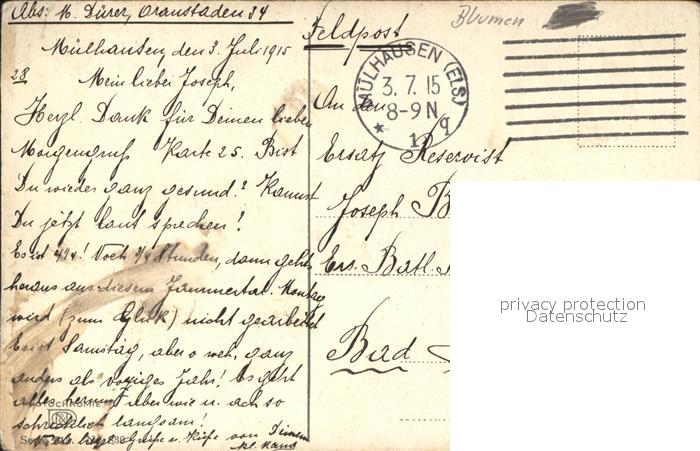 Abs: M. Dürer, Oranstaden 34
Feldpost
Blumen
Mülhausen, den 3. Juli 1915
28
Mein lieber Joseph,
Herzl. Dank für Deinen lieben
Morgengruß Karte 25. Bist
Du wieder ganz gesund? Kannst
Du jetzt laut sprechen!
Es ist 4 Uhr! Noch 3/4 Stunden, dann gehts
heraus aus diesem Jammertal. Montag
wird (zum Glük) nicht gearbeitet
Es ist Samstag, aber o weh, ganz
anders als voriges Jahr! Es geht
alles herum aber wie u. ach so
schrecklich langsam!
Grüße u. Küße von Deinem
kl. Hans
MÜLHAUSEN (ELS)
3.7.15
8-9 N
* 1 q
An den
Ersatz Reservist
Joseph B
Ers. Batl.
Bad
privacy protection
Datenschutz